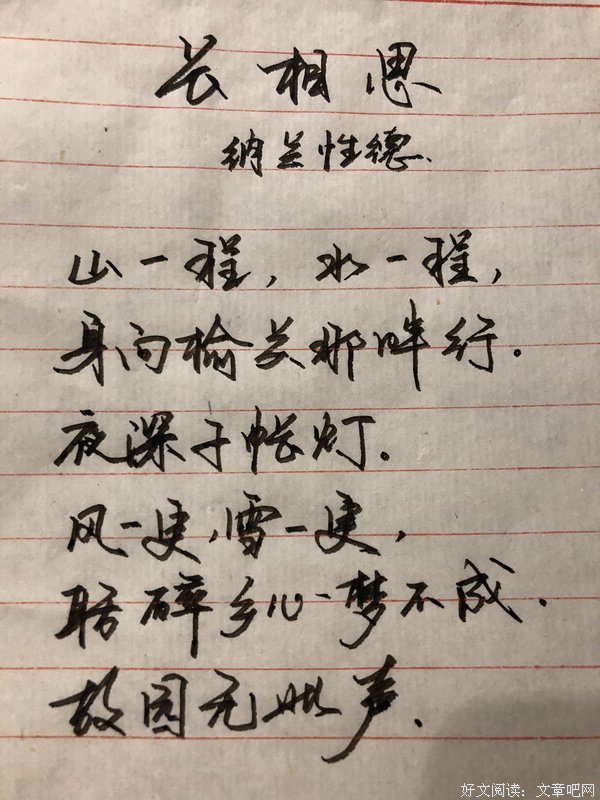 长相思
纳兰性德.
山一程，水一程，
身向榆关那畔行.
夜深千帐灯.
风一更，雪一更，
聒碎乡心梦不成.
故园无此声.
好文阅读：文章吧网